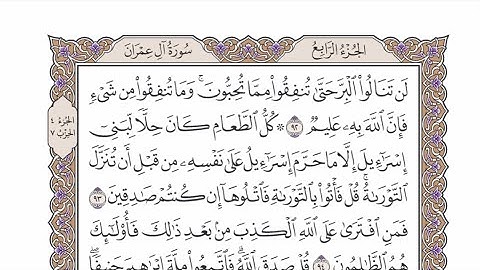 الجُزْءُ الرَّابِعُ
سُورَةُ آلِ عِمْرَانَ
لَن تَنَالُوا۟ ٱلْبِرَّ حَتَّىٰ تُنفِقُوا۟ مِمَّا تُحِبُّونَ ۚ وَمَا تُنفِقُوا۟ مِن شَىْءٍ
فَإِنَّ ٱللَّهَ بِهِۦ عَلِيمٌ ٩٢ ۞ كُلُّ ٱلطَّعَامِ كَانَ حِلًّا لِّبَنِىٓ
إِسْرَٰٓءِيلَ إِلَّا مَا حَرَّمَ إِسْرَٰٓءِيلُ عَلَىٰ نَفْسِهِۦ مِن قَبْلِ أَن تُنَزَّلَ
ٱلتَّوْرَىٰةُ ۗ قُلْ فَأْتُوا۟ بِٱلتَّوْرَىٰةِ فَٱتْلُوهَآ إِن كُنتُمْ صَٰدِقِينَ ٩٣
فَمَنِ ٱفْتَرَىٰ عَلَى ٱللَّهِ ٱلْكَذِبَ مِنۢ بَعْدِ ذَٰلِكَ فَأُو۟لَٰٓئِكَ
هُمُ ٱلظَّٰلِمُونَ ٩٤ قُلْ صَدَقَ ٱللَّهُ ۗ فَٱتَّبِعُوا۟ مِلَّةَ إِبْرَٰهِيمَ حَنِيفًا ۖ
الجُزْءُ ٤
الحِزْبُ ٧